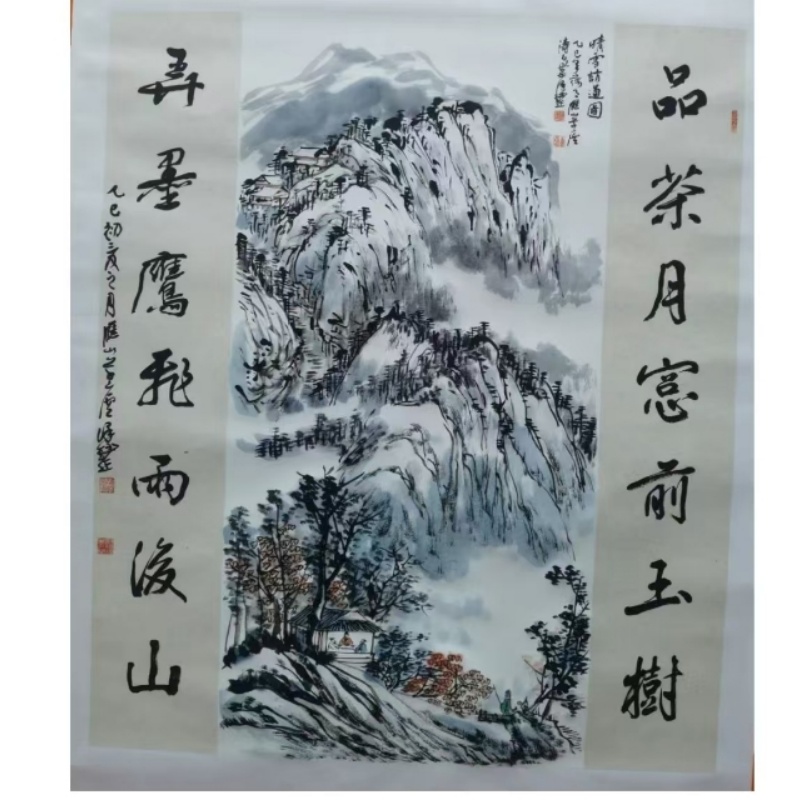 品茶月窓前玉樹
訪道圖
乙巳年
弄墨鷹飛雨後山
乙巳初夏之月